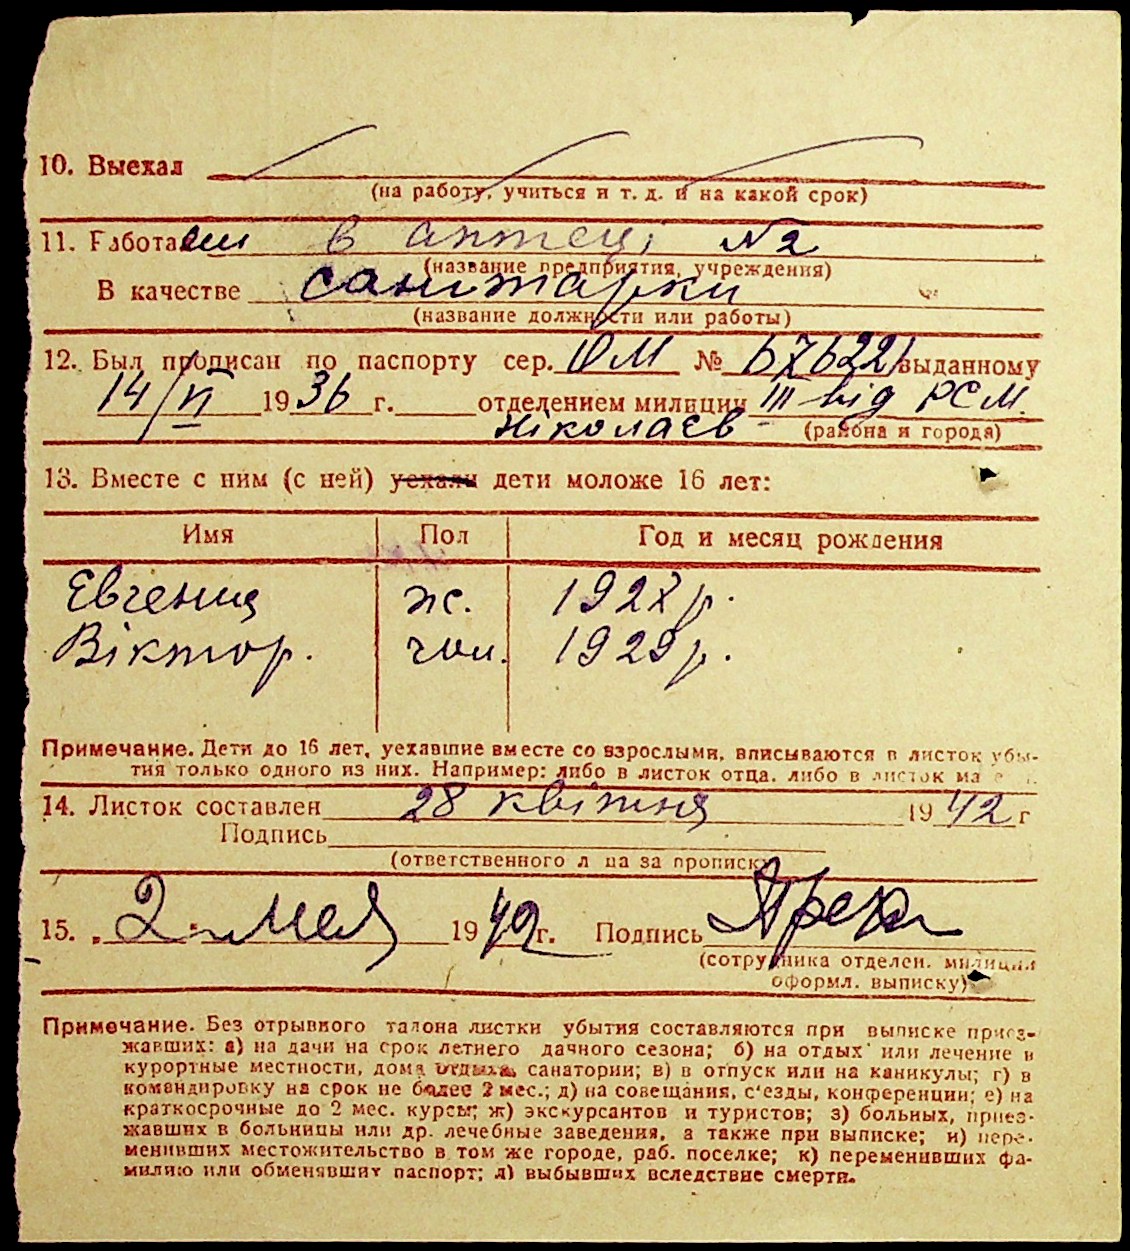 10. Выехал
(на работу, учиться и т. д. и на какой срок)
11. Работает в аптеці №2
(название предприятия, учреждения)
В качестве санитарки
(название должности или работы)
12. Был прописан по паспорту сер. ЮМ № 676221 выданному
14/VI 1936 г. отделением милиции III від РСМ.
Ніколаєв (района и города)
13. Вместе с ним (с ней) уехали дети моложе 16 лет:
Имя Пол Год и месяц рождения
Евгения ж. 1927 р.
Віктор. чол. 1929 р.
Примечание. Дети до 16 лет, уехавшие вместе со взрослыми, вписываются в листок убы-
тия только одного из них. Например: либо в листок отца, либо в листок
14. Листок составлен 28 квітня 1942 г
Подпись
(ответственного лица за прописку)
15. „2" мая 1942 г. Подпись
(сотрудника отделен. милиции
оформл. выписку)
Примечание. Без отрывного талона листки убытия составляются при выписке приез-
жавших: а) на дачи на срок летнего дачного сезона; б) на отдых или лечение в
курортные местности, дома отдыха, санатории; в) в отпуск или на каникулы; г) в
командировку на срок не более 2 мес.; д) на совещания, с'езды, конференции; е) на
краткосрочные до 2 мес. курсы; ж) экскурсантов и туристов; з) больных, приез-
жавших в больницы или др. лечебные заведения, а также при выписке; и) пере-
менивших местожительство в том же городе, раб. поселке; к) переменивших фа-
милию или обменявших паспорт; л) выбывших вследствие смерти.